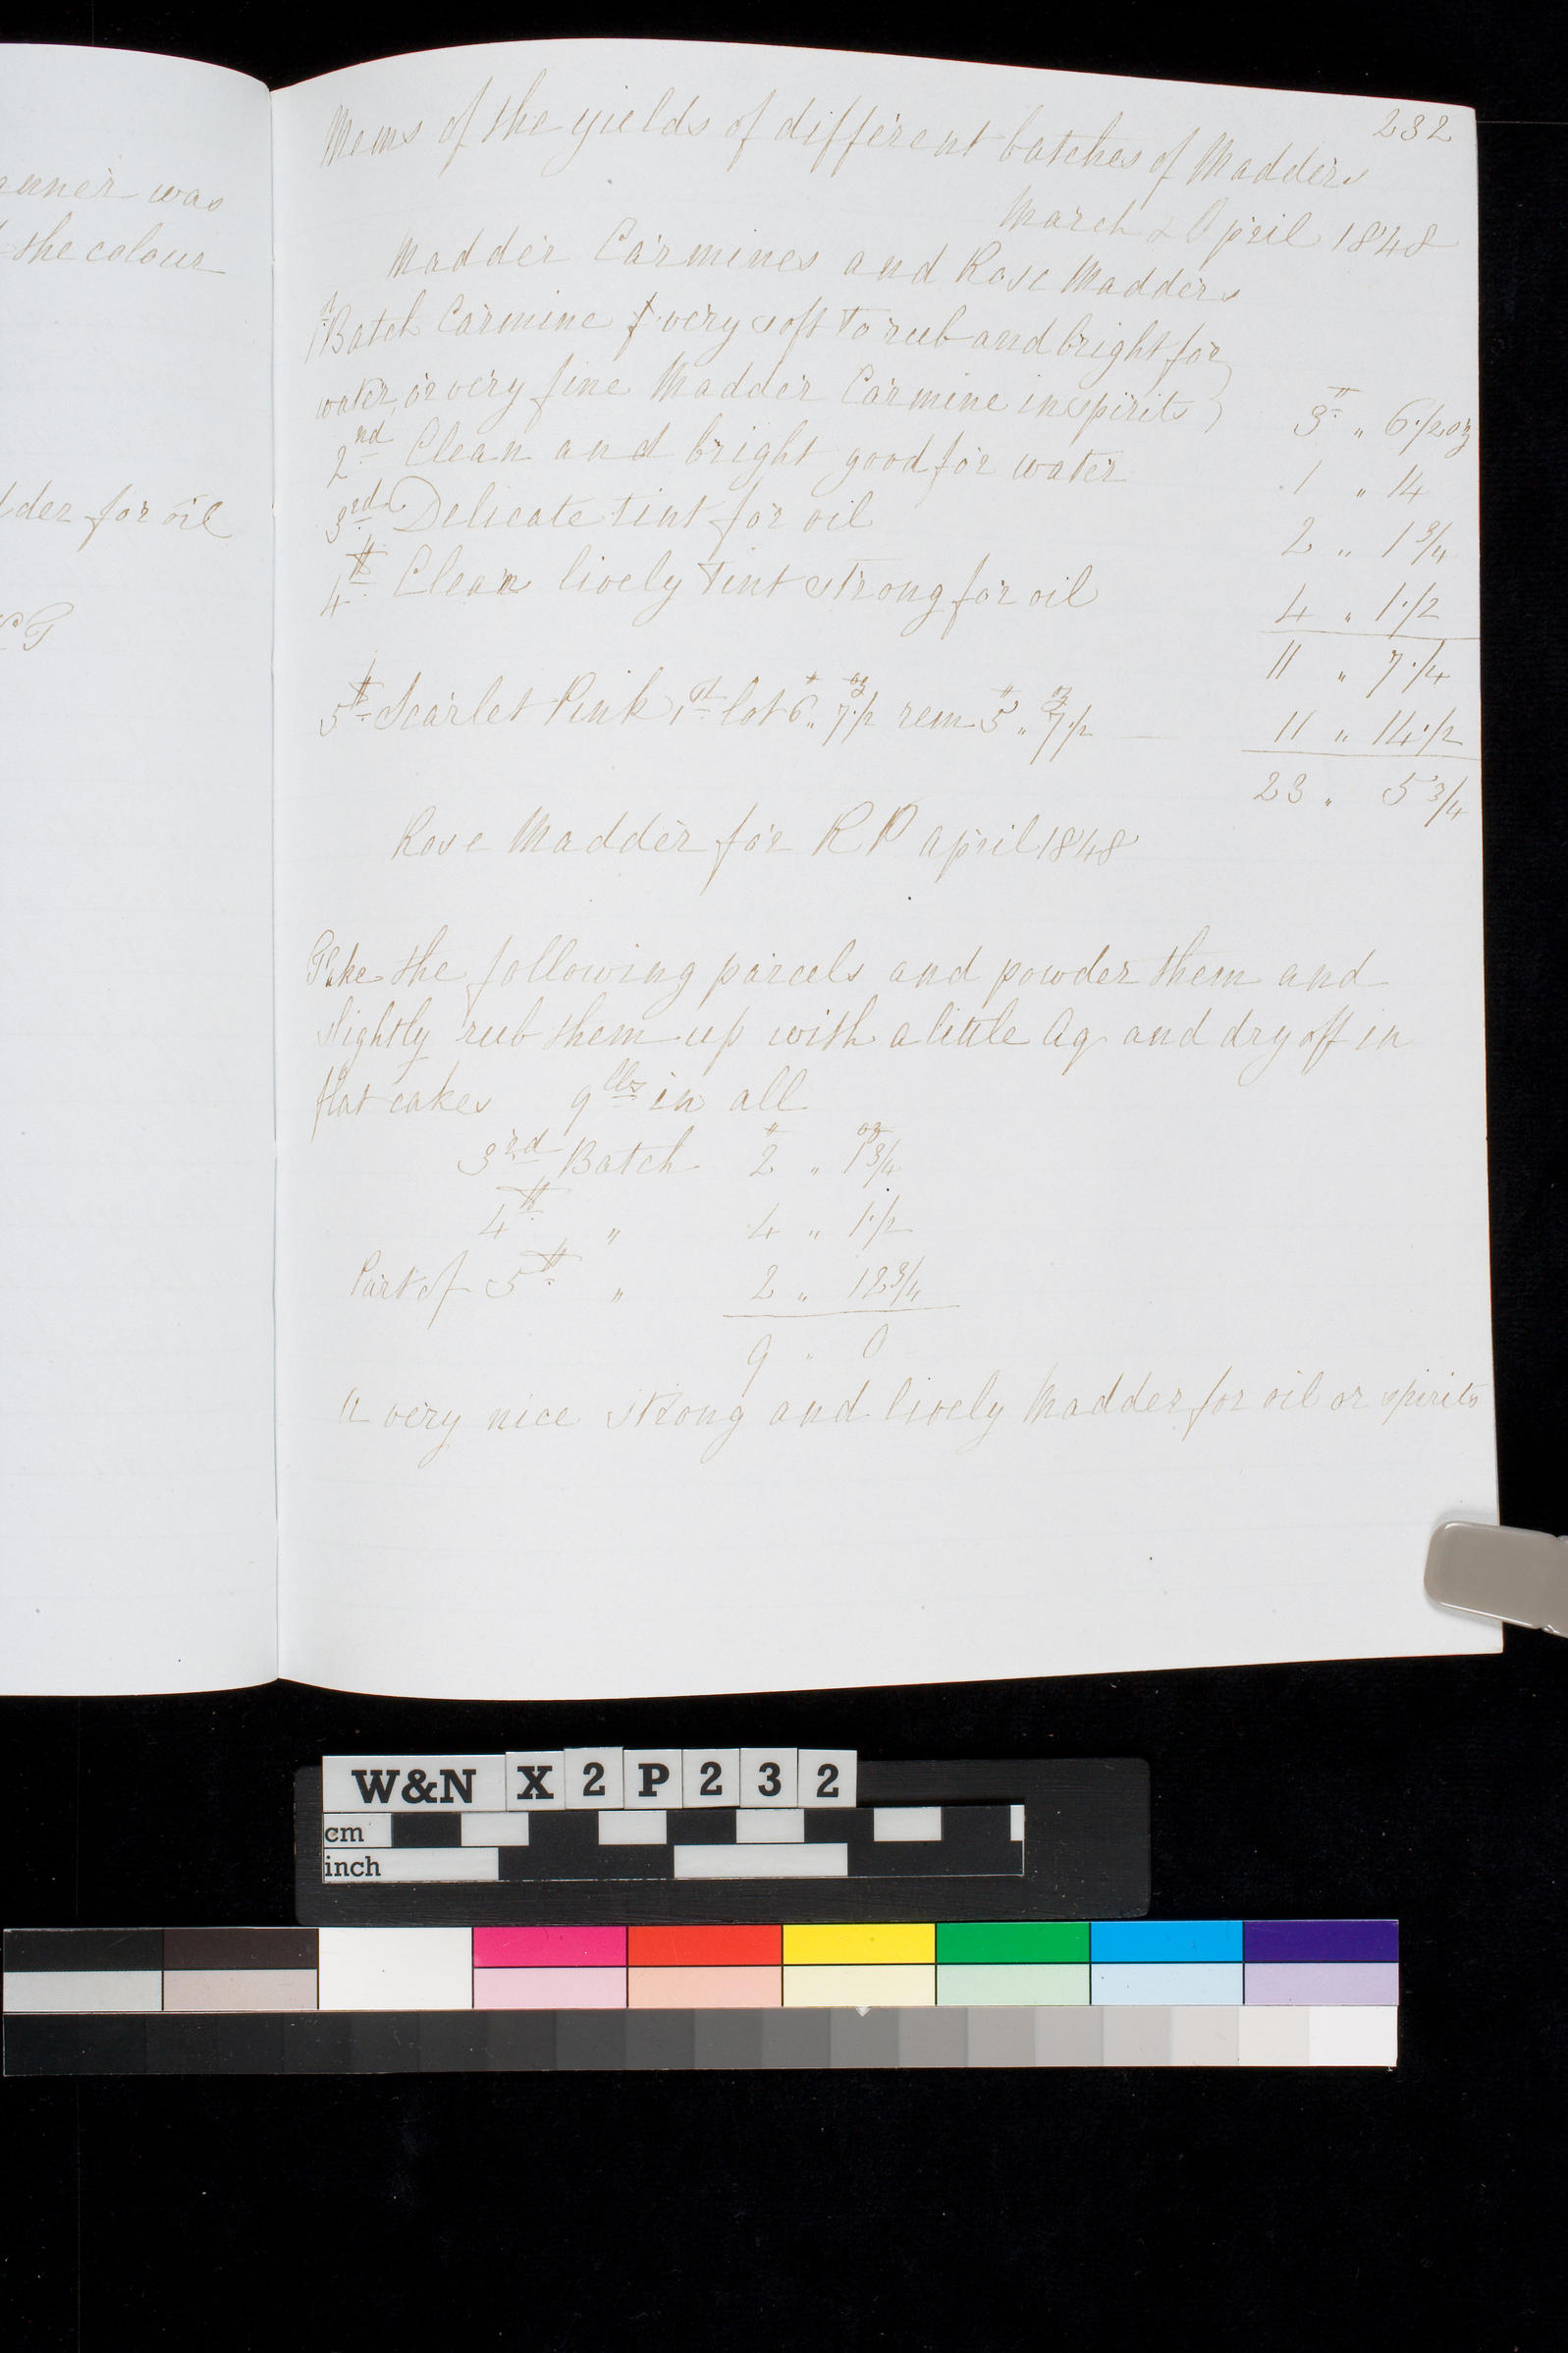 anner was
the colour
dder for oil
232
Mems of the yields of different batches of Madders
March & April 1848
Madder Carmines and Rose Madders
1st Batch Carmine very soft to rub and bright for
water, or very fine Madder Carmine in spirits } 3 " 6 1/2 oz
2nd Clean and bright good for water 1 " 14
3rd Delicate tint for oil 2 " 1 3/4
4th Clean lively tint strong for oil 4 " 1 1/2
11 " 7 1/4
5th Scarlet Pink 1st lot 6 " 7 1/2 rem 5 " 7 1/2 11 " 14 1/2
23 " 5 3/4
Rose Madder for R P april 1848
Take the following parcels and powder them and
slightly rub them up with a little Aq and dry off in
flat cakes 9 lbs in all
3rd Batch 2 " 1 3/4
4th " 4 " 1 1/2
Part of 5th " 2 " 12 3/4
9 " 0
A very nice strong and lively Madder for oil or spirits
W&N X2P232
cm
inch